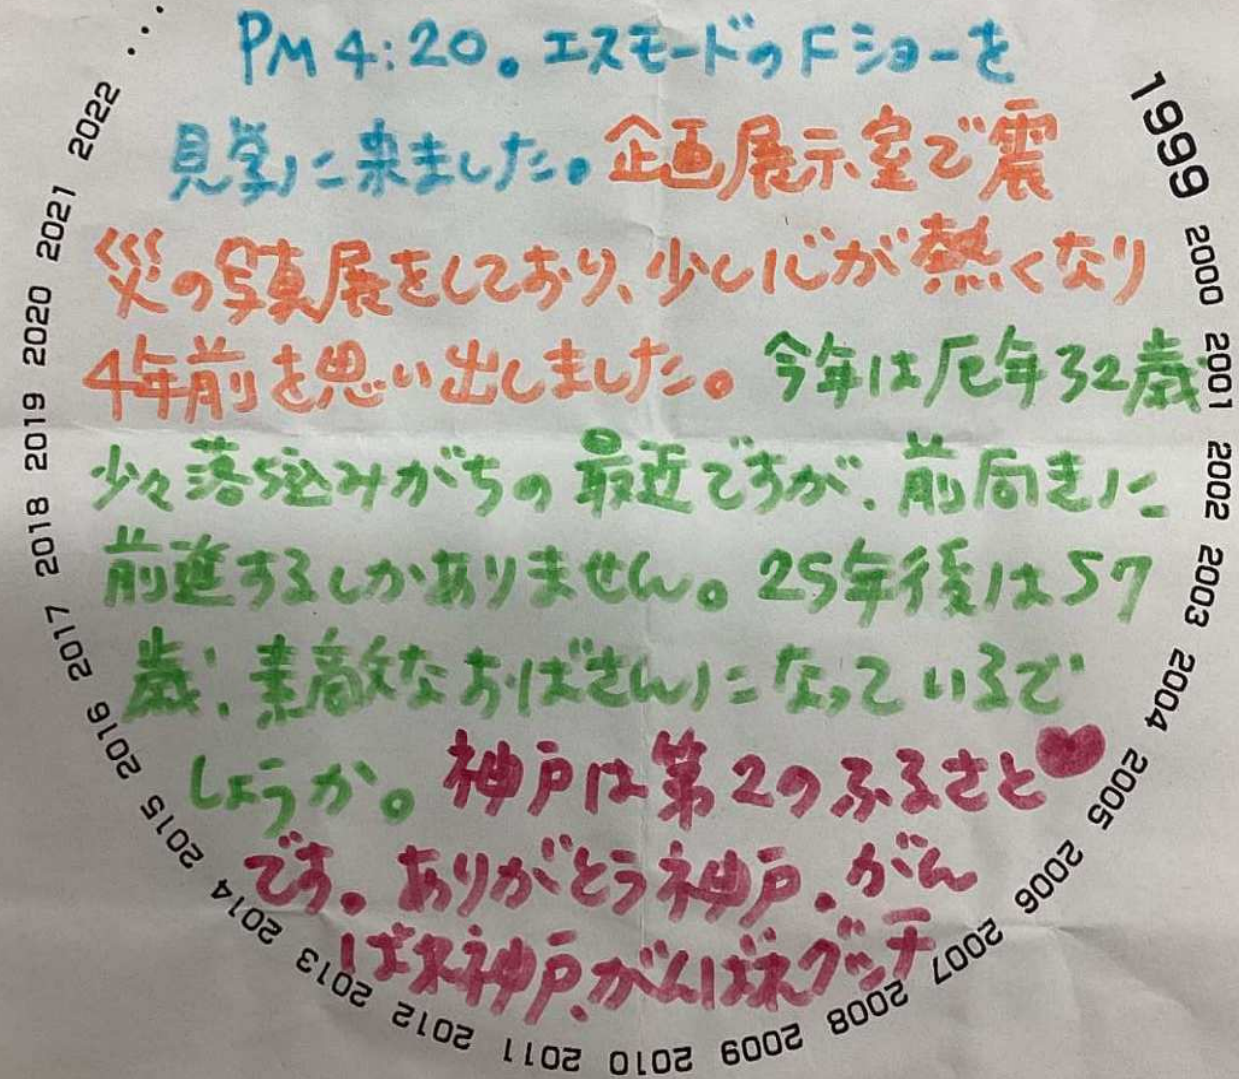 PM 4:20。エスモードのFショーを
見学に来ました。企画展示室で震
災の写真展をしており、少し心が熱くなり
4年前を思い出しました。今年は厄年32歳
少々落ち込みがちの最近ですが、前向きに
前進するしかありません。25年後は57
歳!素敵なおばさんになっているで
しょうか。神戸は第2のふるさと♥
です。ありがとう神戸。がん
ばれ神戸。がんばれグッチ
1999 2000 2001 2002 2003 2004 2005 2006 2007 2008 2009 2010 2011 2012 2013 2014 2015 2016 2017 2018 2019 2020 2021 2022 ...